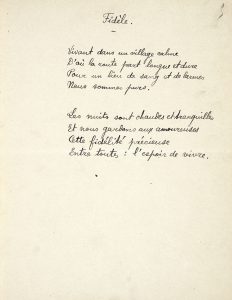 Fidèle.
Vivant dans un village calme
D'où la route part longue et dure
Pour un lieu de sang et de larmes
Nous sommes purs.
Les nuits sont chaudes et tranquilles
Et nous gardons aux amoureuses
Cette fidélité précieuse
Entre toute : l'espoir de vivre.